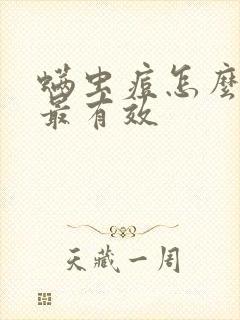 螨虫痘怎麼
最有效
天藏一周